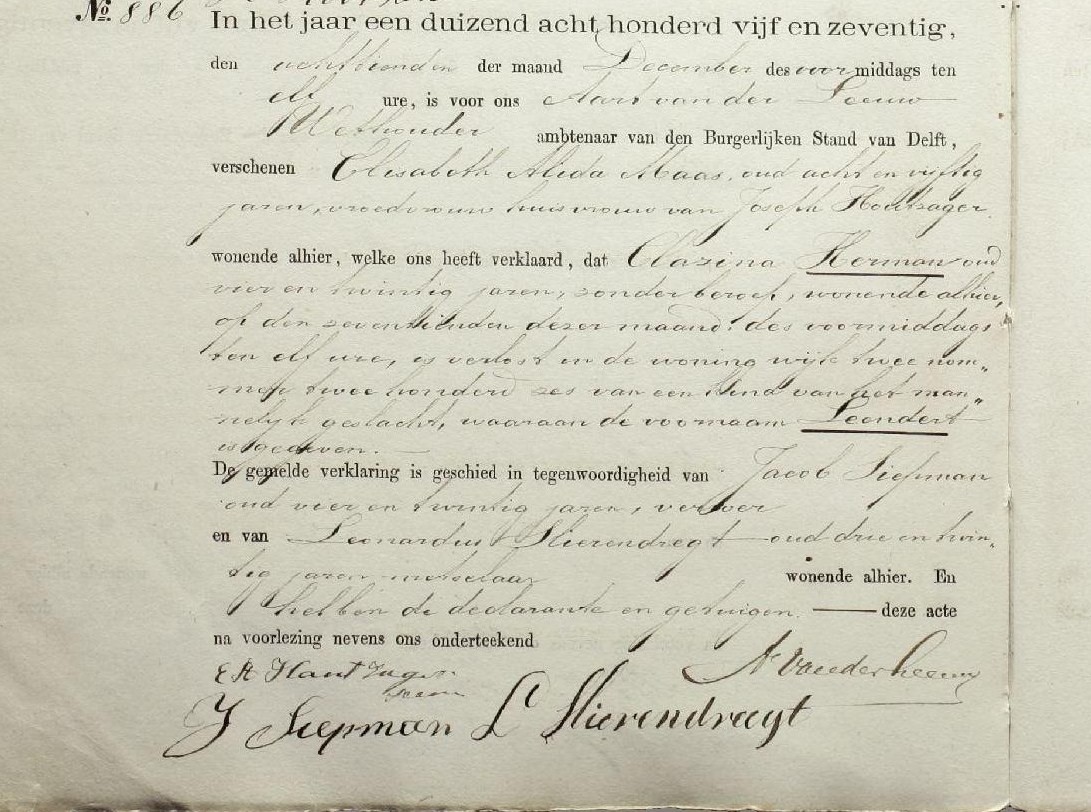 № 886
In het jaar een duizend acht honderd vijf en zeventig,
den achttienden der maand December des voormiddags ten
elf ure, is voor ons Aart van der Leeuw
Wethouder ambtenaar van den Burgerlijken Stand van Delft,
verschenen Elisabeth Alida Maas, oud acht en vijftig
jaren, vroedvrouw huisvrouw van Joseph Houtzager
wonende alhier, welke ons heeft verklaard, dat Clazina Herman oud
vier en twintig jaren, zonder beroep, wonende alhier,
op den zeventienden dezer maand des voormiddags
ten elf ure, is verlost in de woning wijk twee nom„
mer twee honderd zes van een kind van het man„
nelijk geslacht, waaraan de voornaam Leendert
is gegeven.
De gemelde verklaring is geschied in tegenwoordigheid van Jacob Siepman
oud vier en twintig jaren, verver
en van Leonardus Slierendregt oud drie en twin„
tig jaren metselaar wonende alhier. En
hebben de declarante en getuigen. deze acte
na voorlezing nevens ons onderteekend
E A Houtzager
Maas
A van der Leeuw
J Siepman L Slierendregt